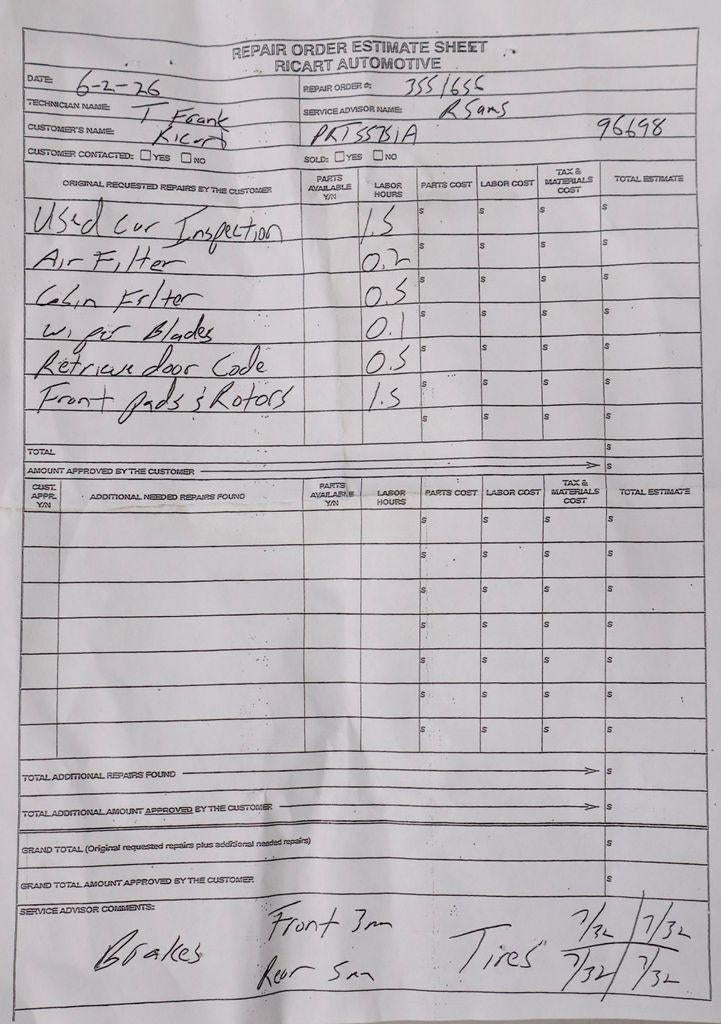 REPAIR ORDER ESTIMATE SHEET
RICART AUTOMOTIVE
DATE: 6-2-26 REPAIR ORDER #: 355/656
TECHNICIAN NAME: T Frank SERVICE ADVISOR NAME: R Sams
CUSTOMER'S NAME: Ricart PRT55751A 96698
CUSTOMER CONTACTED: YES NO SOLD: YES NO
ORIGINAL REQUESTED REPAIRS BY THE CUSTOMER PARTS AVAILABLE Y/N LABOR HOURS PARTS COST LABOR COST TAX & MATERIALS COST TOTAL ESTIMATE
Used Car Inspection 1.5 $ $ $ $
Air Filter 0.2 $ $ $ $
Cabin Filter 0.5 $ $ $ $
wiper Blades 0.1 $ $ $ $
Retrieve door Code 0.5 $ $ $ $
Front pads & Rotors 1.5 $ $ $ $
$ $ $ $
TOTAL $
AMOUNT APPROVED BY THE CUSTOMER $
CUST. APPR. Y/N ADDITIONAL NEEDED REPAIRS FOUND PARTS AVAILABLE Y/N LABOR HOURS PARTS COST LABOR COST TAX & MATERIALS COST TOTAL ESTIMATE
$ $ $ $
$ $ $ $
$ $ $ $
$ $ $ $
$ $ $ $
$ $ $ $
$ $ $ $
TOTAL ADDITIONAL REPAIRS FOUND $
TOTAL ADDITIONAL AMOUNT APPROVED BY THE CUSTOMER $
GRAND TOTAL (Original requested repairs plus additional needed repairs) $
GRAND TOTAL AMOUNT APPROVED BY THE CUSTOMER $
SERVICE ADVISOR COMMENTS:
Brakes Front 3mm Tires 7/32 7/32
Rear 5mm 7/32 7/32